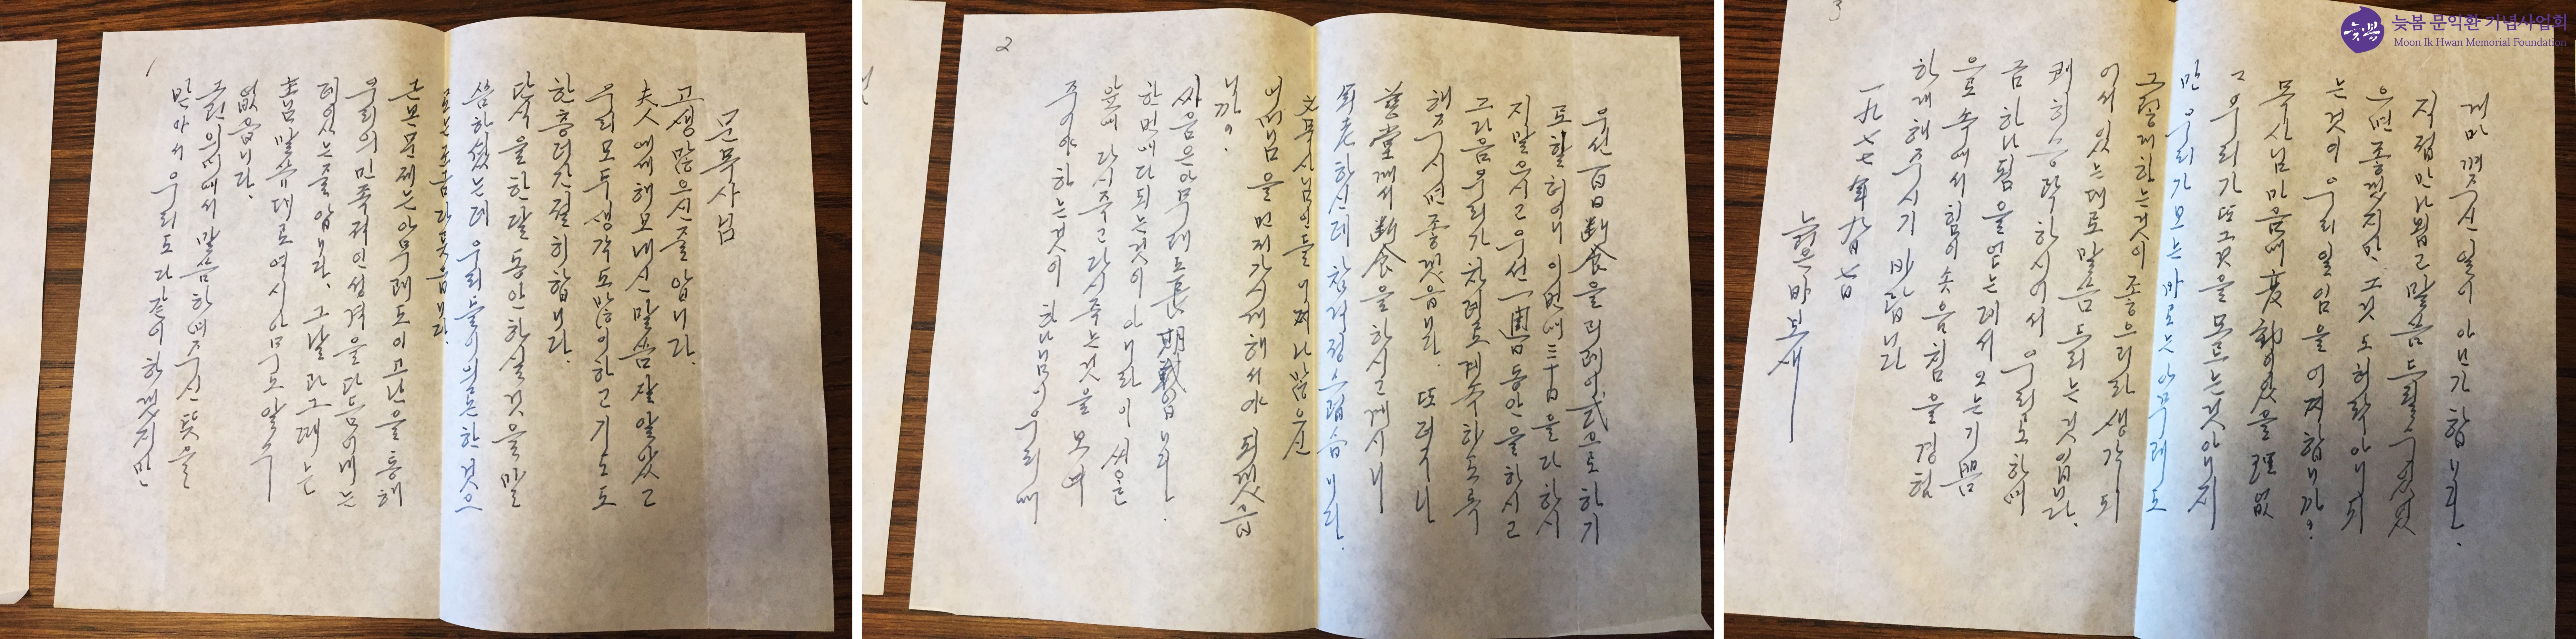 1
문목사님
고생 많으신 줄 압니다.
夫人에게 해 보내신 말씀 잘 알았고
우리 모두 생각도 많이 하고 기도도
한층 더 간절히 합니다.
단식을 한달 동안 하실 것을 말
씀하셨는데 우리들이 의논한 것으
로는 조금 다릅니다.
근본문제는 아무래도 이 고난을 통해
우리의 민족적인 성격을 다듬어내는
데 있는 줄 압니다. 그날과 그때는
主님 말씀대로 역시 아무도 알 수
없읍니다.
그런 의미에서 말씀하여 주신 뜻을
받아서 우리도 다 같이 하겠지만
2
우선 百日斷食을 리레이式으로 하기
로 할 터이니 이번에 三十日을 다 하시
지 말으시고 우선 一週日 동안을 하시고
그 다음 우리가 차례로 계속하도록
해주시면 좋겠읍니다. 또 더구나
堂께서 斷食을 하시고 계시니
年老하신데 참 걱정스럽습니다.
文목사님인들 어찌 나많으신
어머님을 먼저 가시게 해서야 되겠습
니까?
싸움은 아무래도 長期戰입니다.
한번에 다 되는 것이 아니라 이 씨알
앞에 다시 죽고 다시 죽는 것을 보여
주어야 하는 것이 하나님이 우리에
3
게 맡겨주신 일이 아닌가 합니다.
직접 만나뵙고 말씀드릴 수 있었
으면 좋겠지만, 그것도 허락 아니 되
는 것이 우리 일임을 어찌합니까?
목사님 마음에 變動이 있을 理 없
고 우리가 또 그것을 모르는 것 아니지
만 우리가 보는 바로는 아무래도
그렇게 하는 것이 좋으리라 생각되
어서 있는대로 말씀드리는 것입니다.
쾌히 승락하시어서 우리로 하여
금 하나됨을 얻는 데서 오는 기쁨
으로 속에서 힘이 솟음침을 경험
하게 해주시기 바랍니다
一九七七年 九月 七日
늙은 바보새
늦봄
늦봄 문익환 기념사업회
Moon Ik Hwan Memorial Foundation